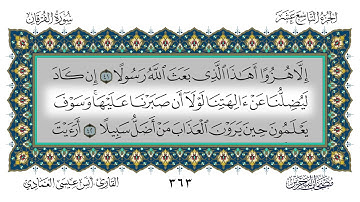 الجزء التاسع عشر
سورة الفرقان
إِلَّا هُزُوًا أَهَٰذَا ٱلَّذِى بَعَثَ ٱللَّهُ رَسُولًا ٤١ إِن كَادَ
لَيُضِلُّنَا عَنْ ءَالِهَتِنَا لَوْلَآ أَن صَبَرْنَا عَلَيْهَا ۚ وَسَوْفَ
يَعْلَمُونَ حِينَ يَرَوْنَ ٱلْعَذَابَ مَنْ أَضَلُّ سَبِيلًا ٤٢ أَرَءَيْتَ
٣٦٣
القارئ: أنس عيسى العمادي